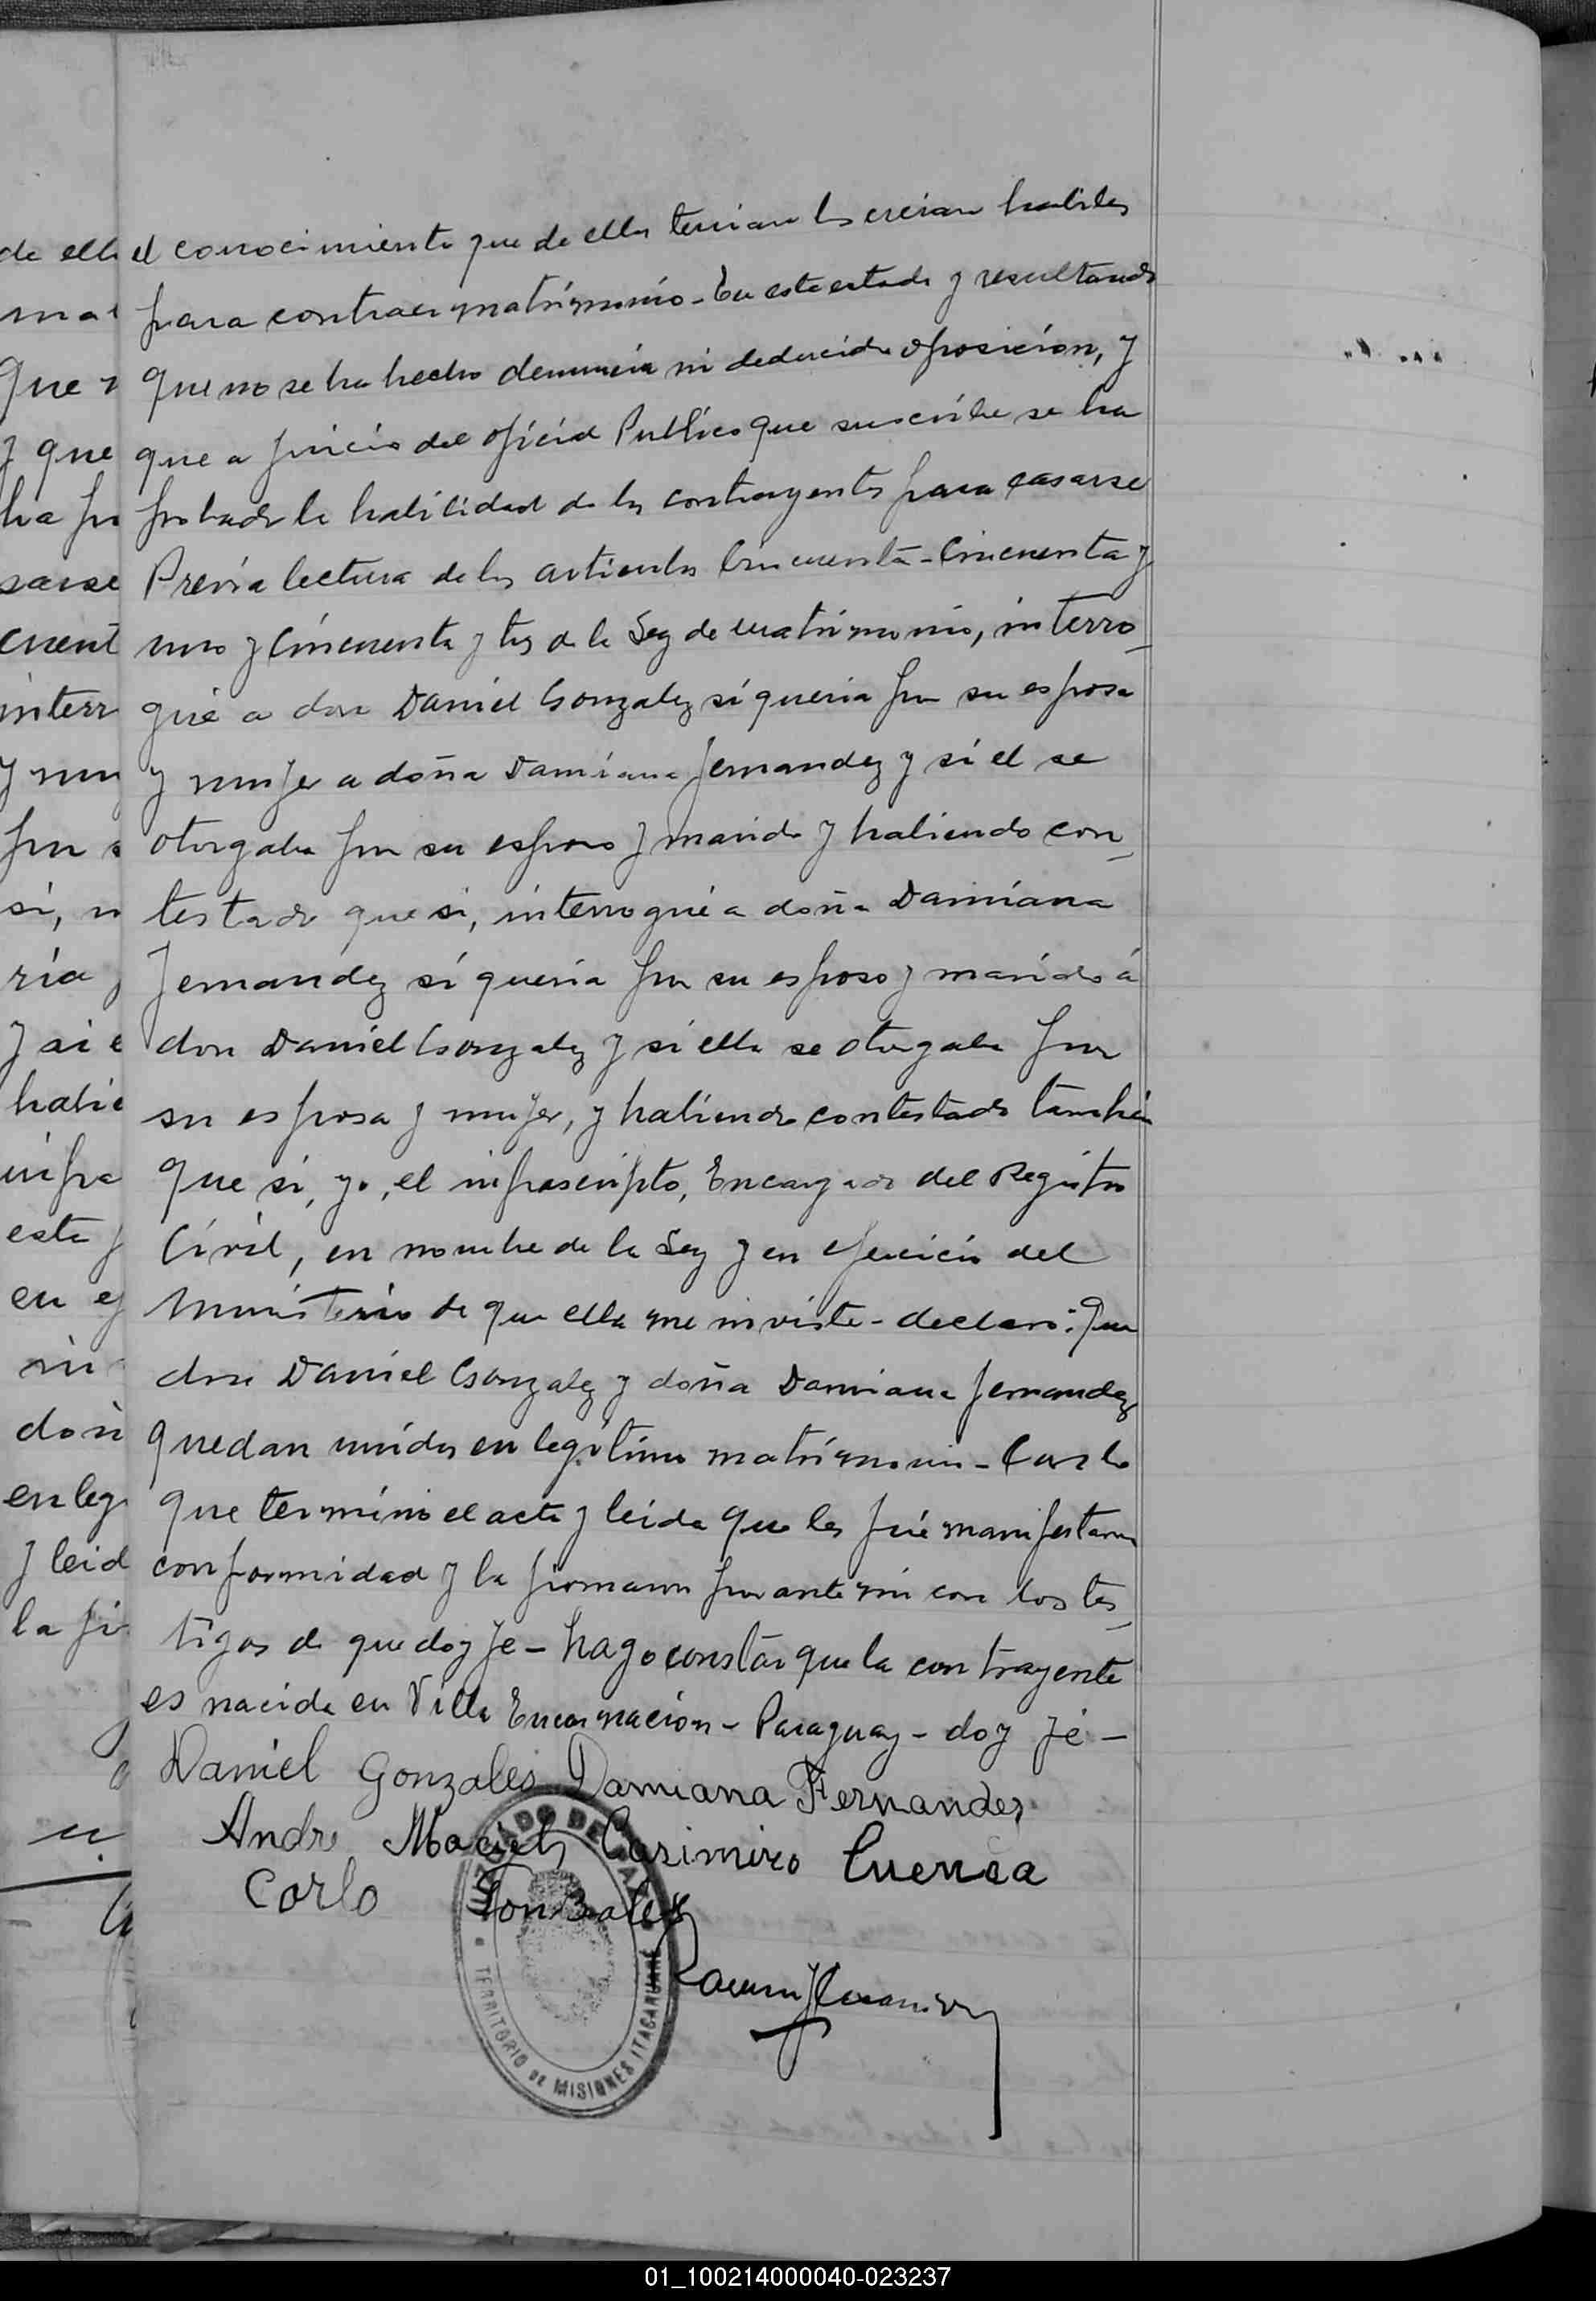 el conocimiento que de ellos tenian los creian habiles
para contraer matrimonio - En este estado y resultando
que no se ha hecho denuncia ni deducido oposicion, y
que a juicio del oficial Publico que suscribe se ha
probado la habilidad de los contrayentes para casarse
Previa lectura de los articulos Cincuenta - Cincuenta y
uno y Cincuenta y tres de la Ley de matrimonio, interro-
gué a don Daniel Gonzalez si queria por su esposa
y mujer a doña Damiana Fernandez y si el se
otorgaba por su esposo y marido y habiendo con-
testado que si, interrogué a doña Damiana
Fernandez si queria por su esposo y marido á
don Daniel Gonzalez y si ella se otorgaba por
su esposa y mujer, y habiendo contestado tambien
que si, yo, el infrascripto, Encargado del Registro
Civil, en nombre de la Ley y en ejercicio del
Ministerio de que ella me inviste - declaro: Que
don Daniel Gonzalez y doña Damiana Fernandez
quedan unidos en legitimo matrimonio - Con lo
que terminó el acta y leida que les fué manifestaron
conformidad y la firmaron por ante mi con los tes-
tigos de que doy fe - hago constar que la contrayente
es nacida en Villa Encarnacion - Paraguay - doy fé -
Daniel Gonzales Damiana Fernandez
Andre Maciel Casimiro Cuenca
Carlo Gonzalez
JUZGADO DE PAZ
TERRITORIO DE MISIONES ITACARUARÉ
01_100214000040-023237